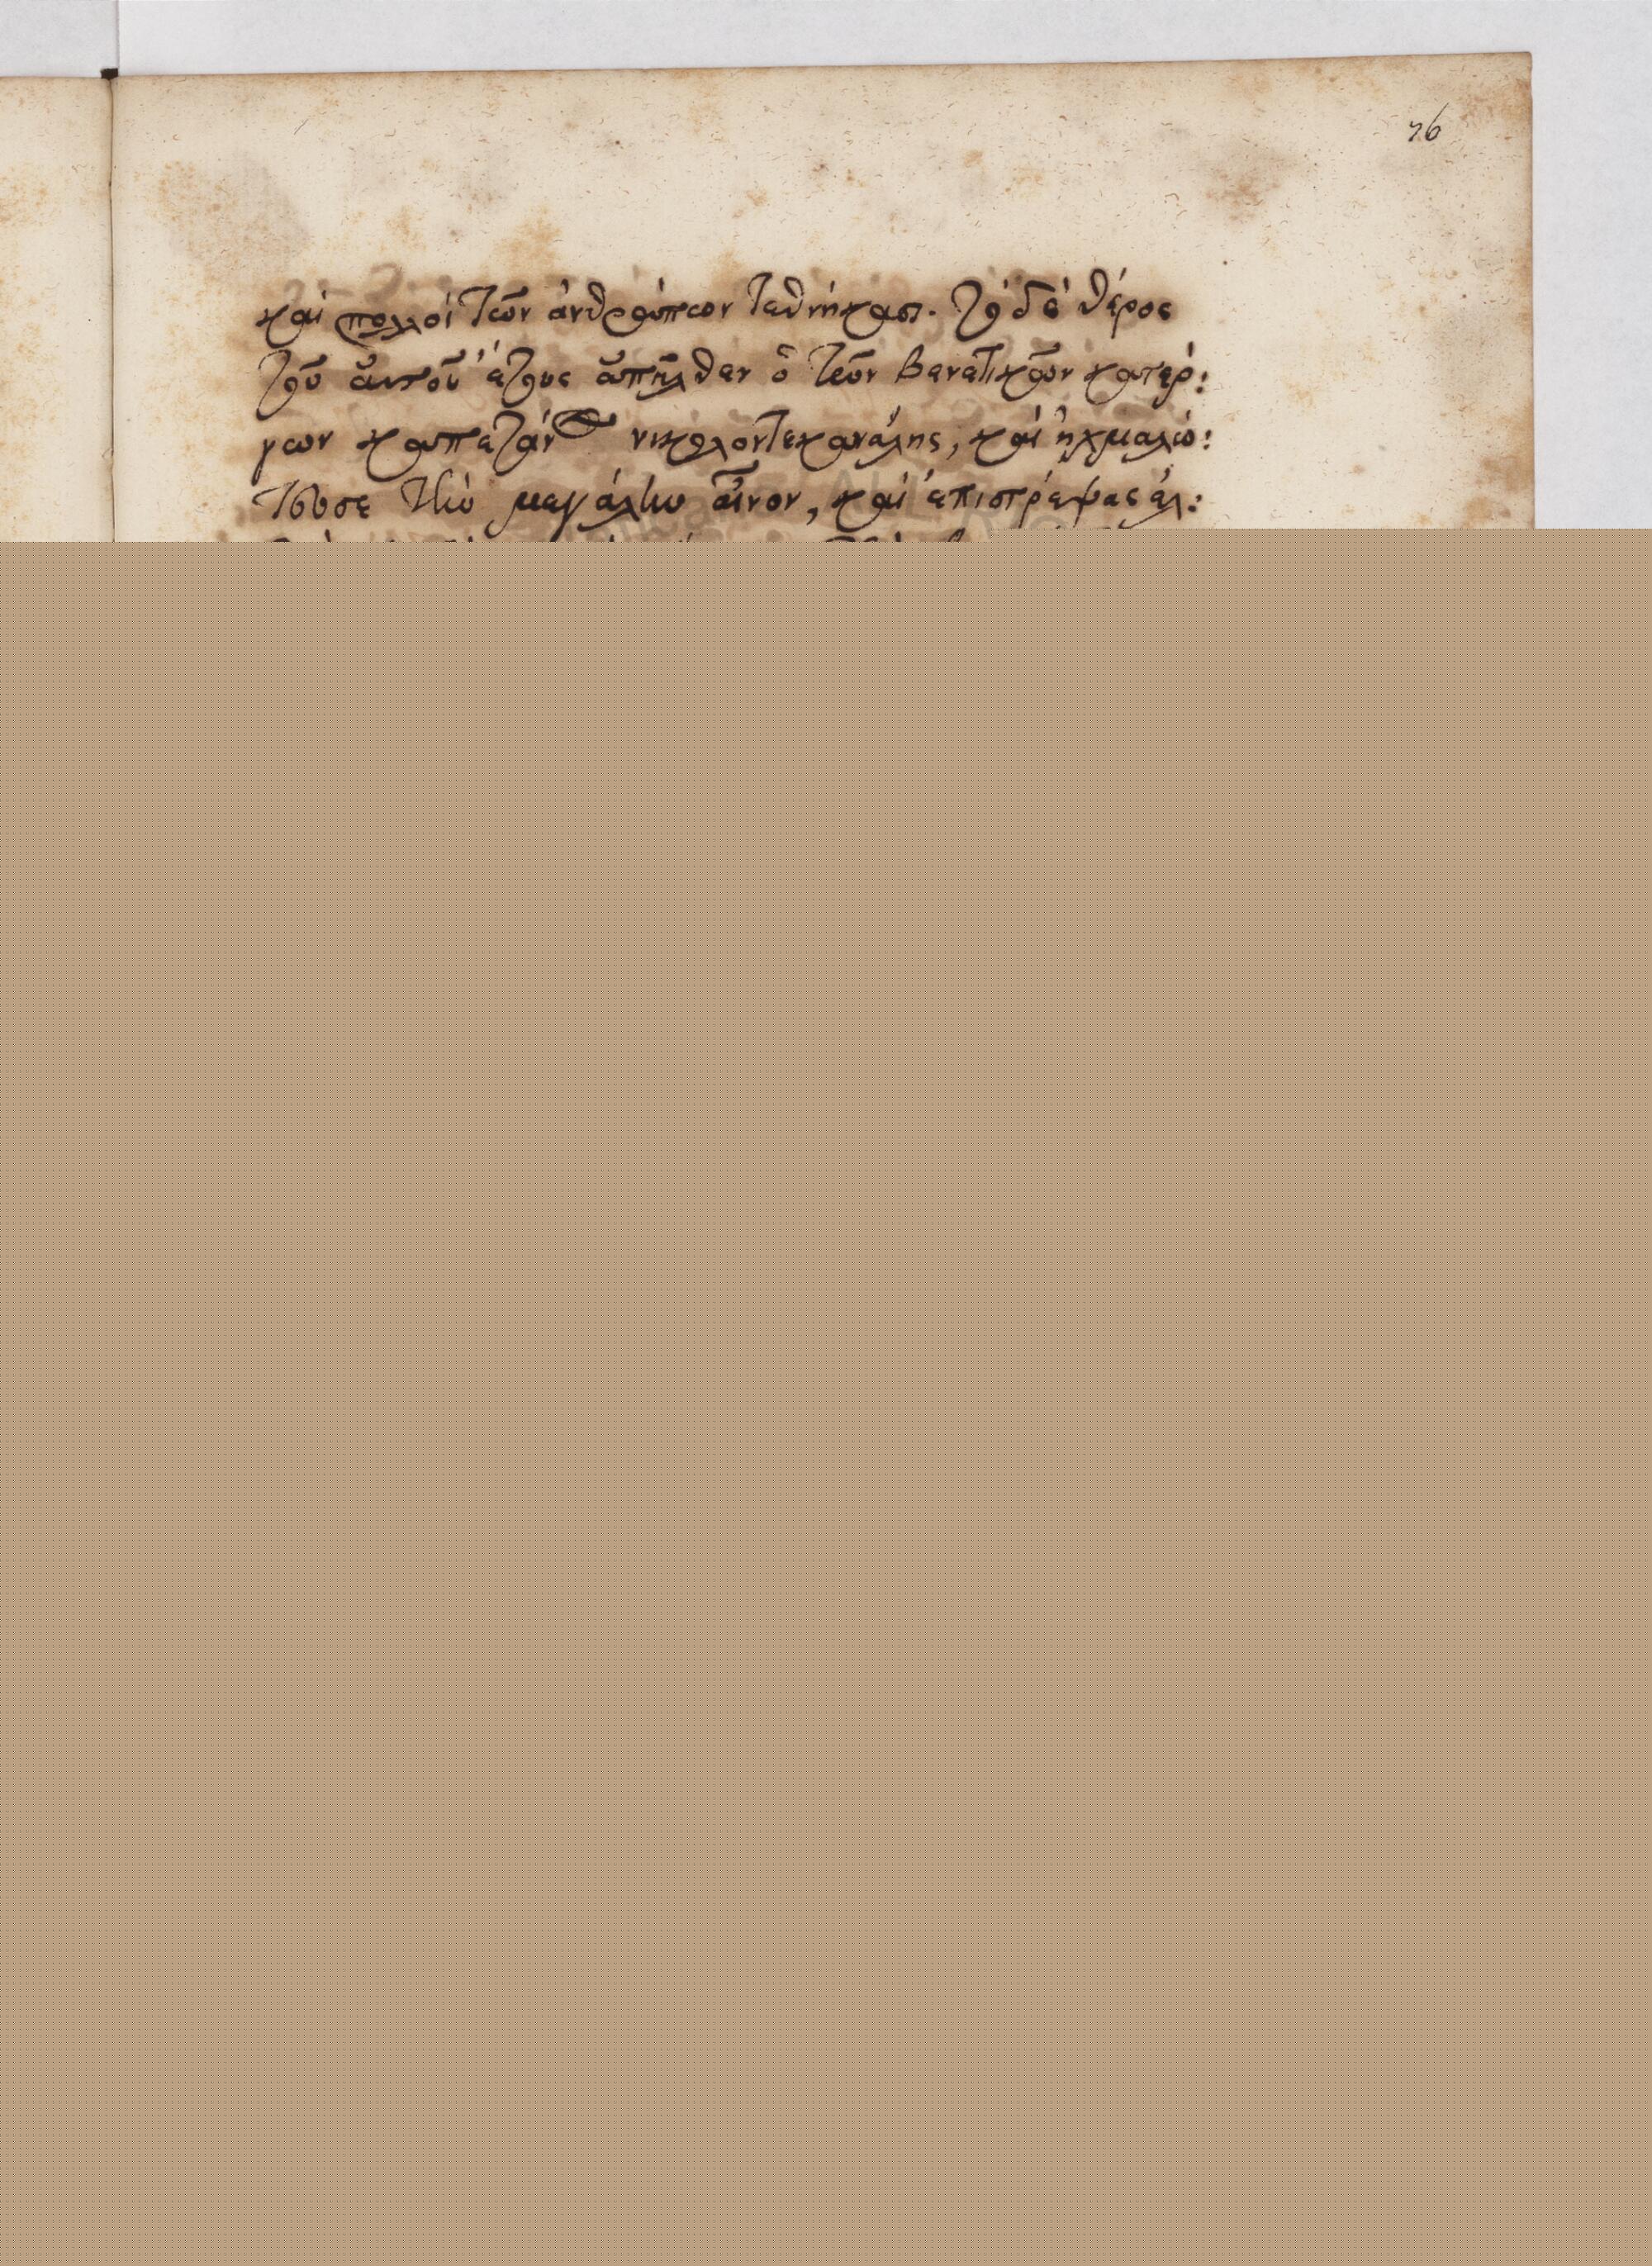 76
καὶ πολλοὶ τῶν ἀνθρώπων τεθνήκασι. τὸ δὲ θέρος
τοῦ αὐτοῦ ἔτους ἀπῆλθεν ὁ τῶν βενετικῶν κατέρ:
γων καπετάν νικολοντεκανάλης, καὶ ἠχμαλώ:
τευσε τὴν μεγάλην αἶνον, καὶ ἐπιστρέψας ἀλ: